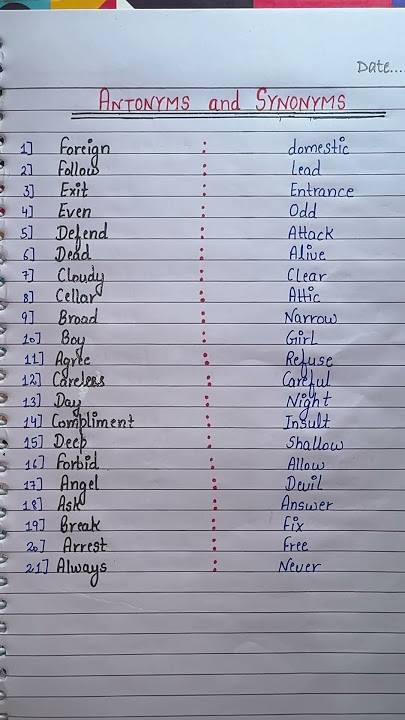 Date....
ANTONYMS and SYNONYMS
1] Foreign : domestic
2] Follow : Lead
3] Exit : Entrance
4] Even : Odd
5] Defend : Attack
6] Dead : Alive
7] Cloudy : Clear
8] Cellar : Attic
9] Broad : Narrow
10] Boy : Girl
11] Agree : Refuse
12] Careless : Careful
13] Day : Night
14] Compliment : Insult
15] Deep : Shallow
16] Forbid : Allow
17] Angel : Devil
18] Ask : Answer
19] Break : Fix
20] Arrest : Free
21] Always : Never